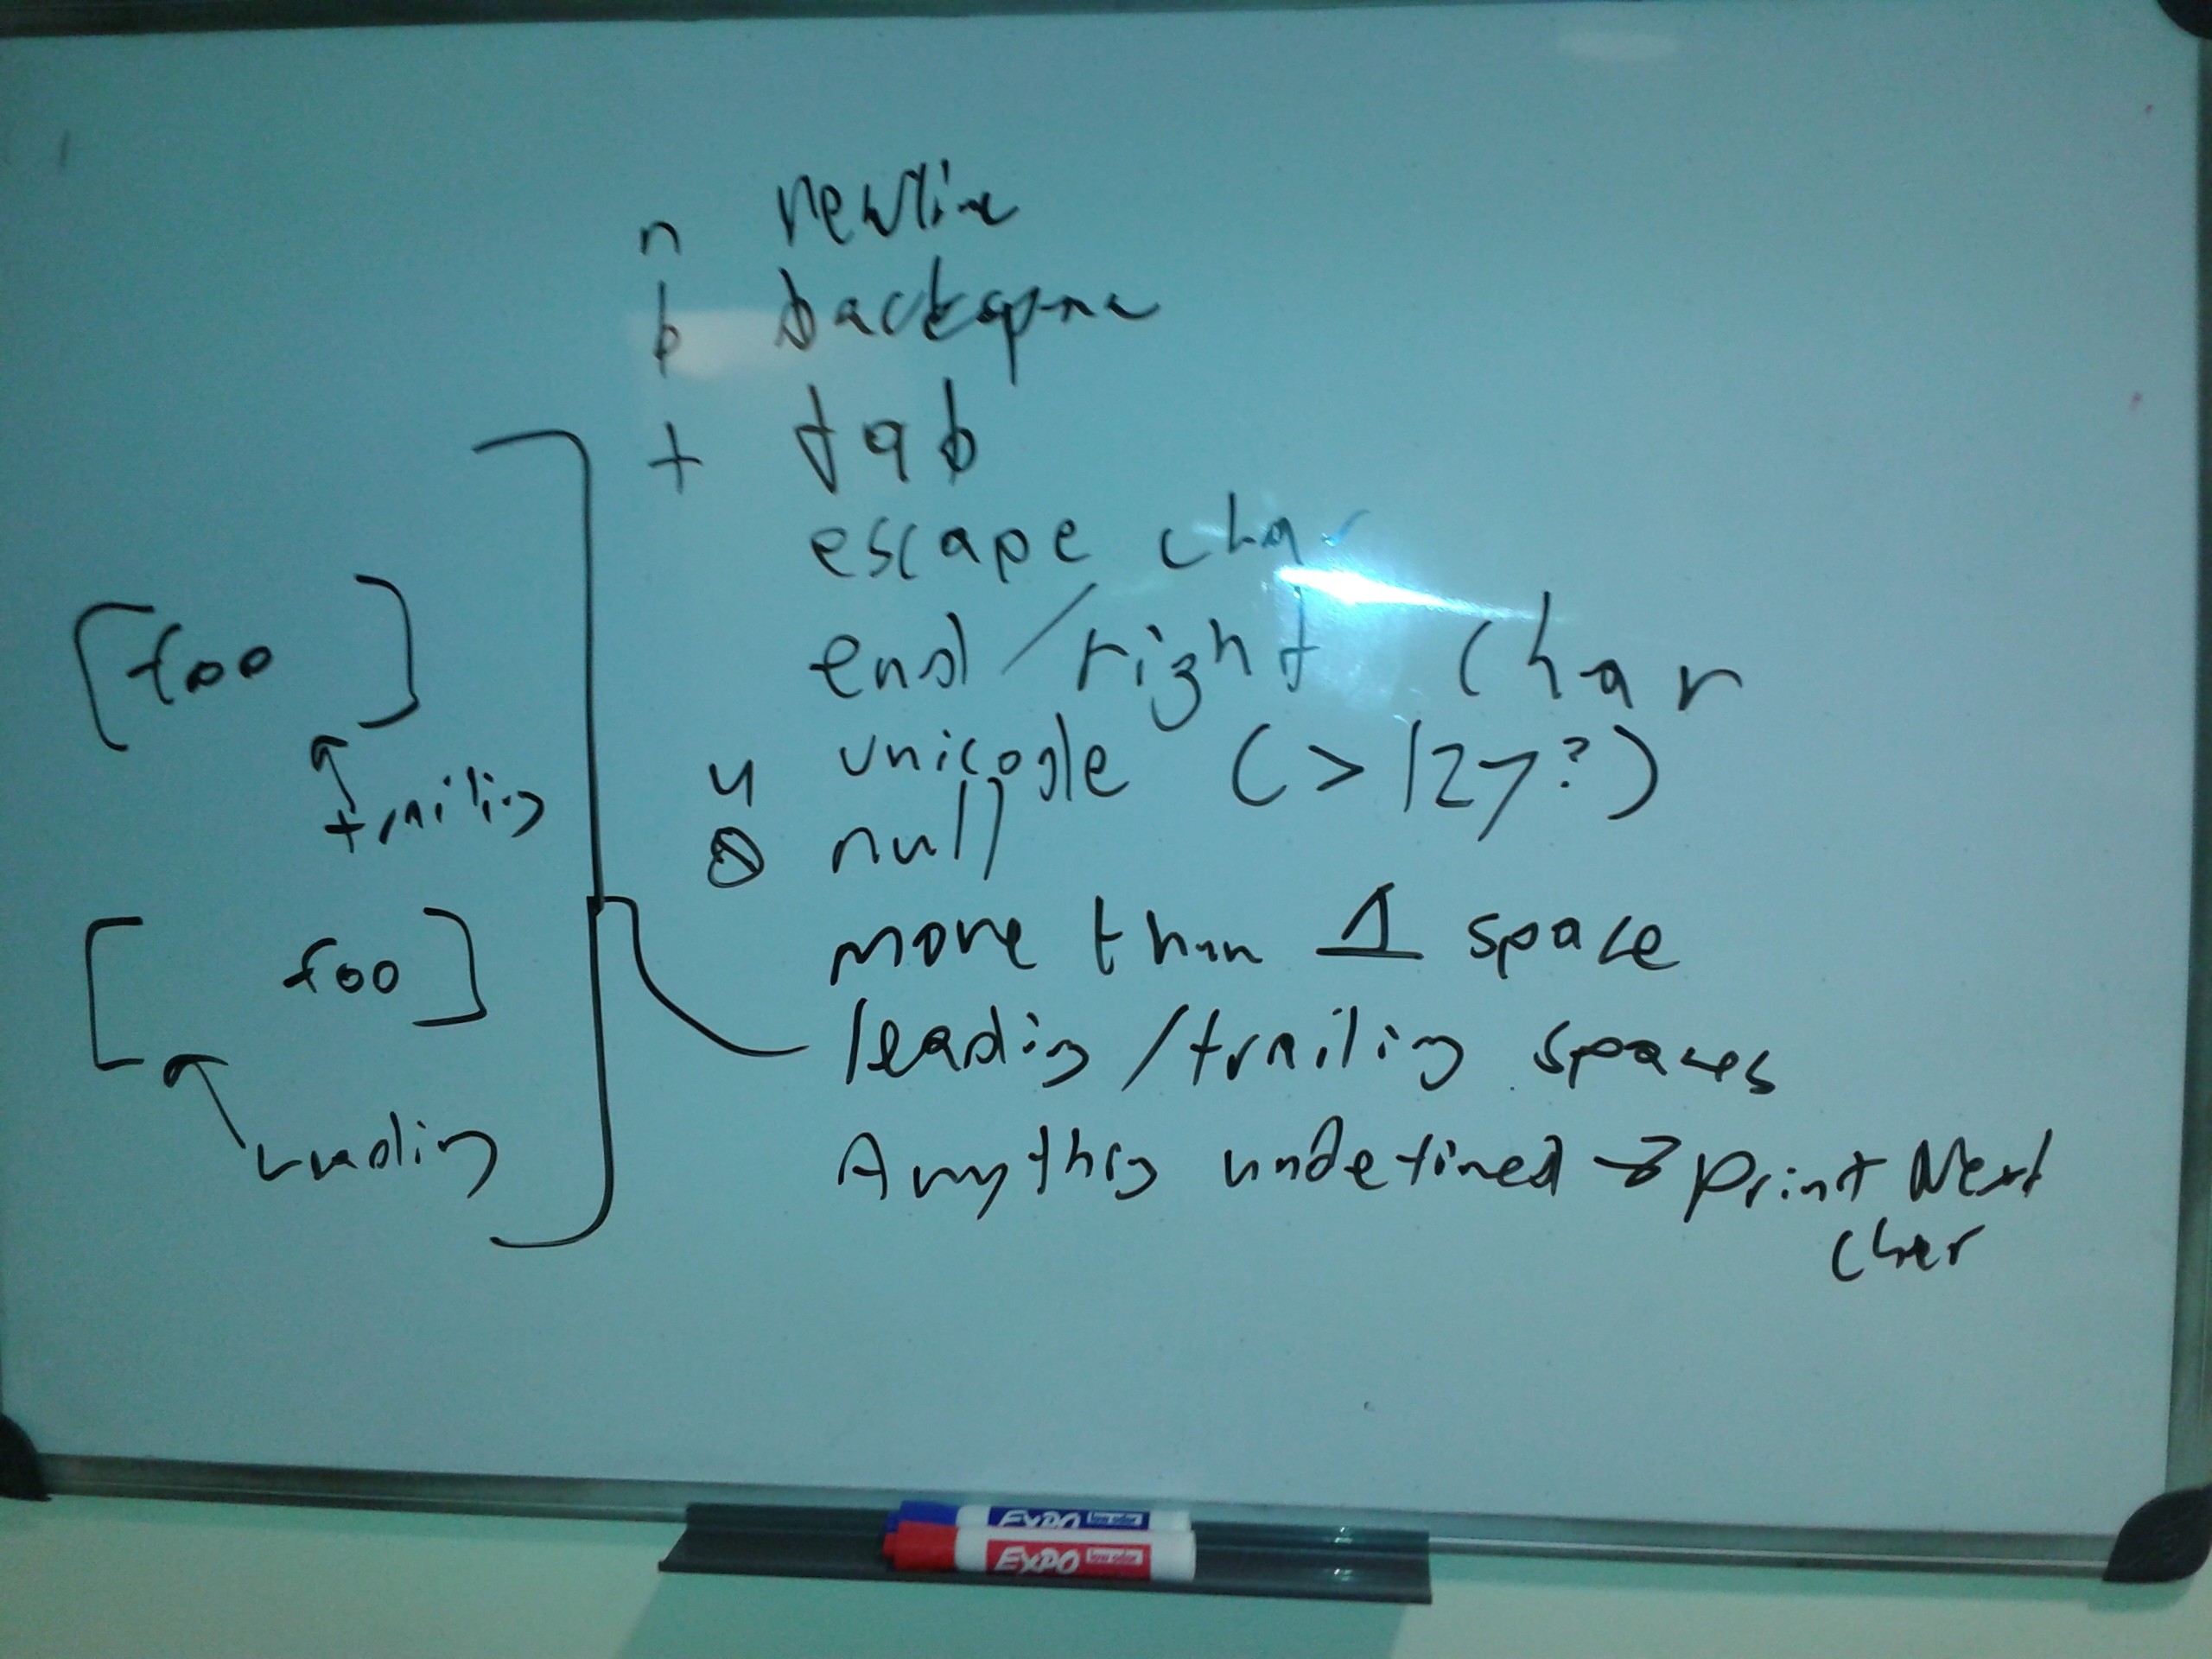 n newline
b backspace
t tab
escape char
end/right char
u unicode (>127?)
0 null
more than 1 space
leading/trailing spaces
Anything undefined → print Next
char
[foo ]
trailing
[ foo]
leading
EXPO low odor
EXPO low odor